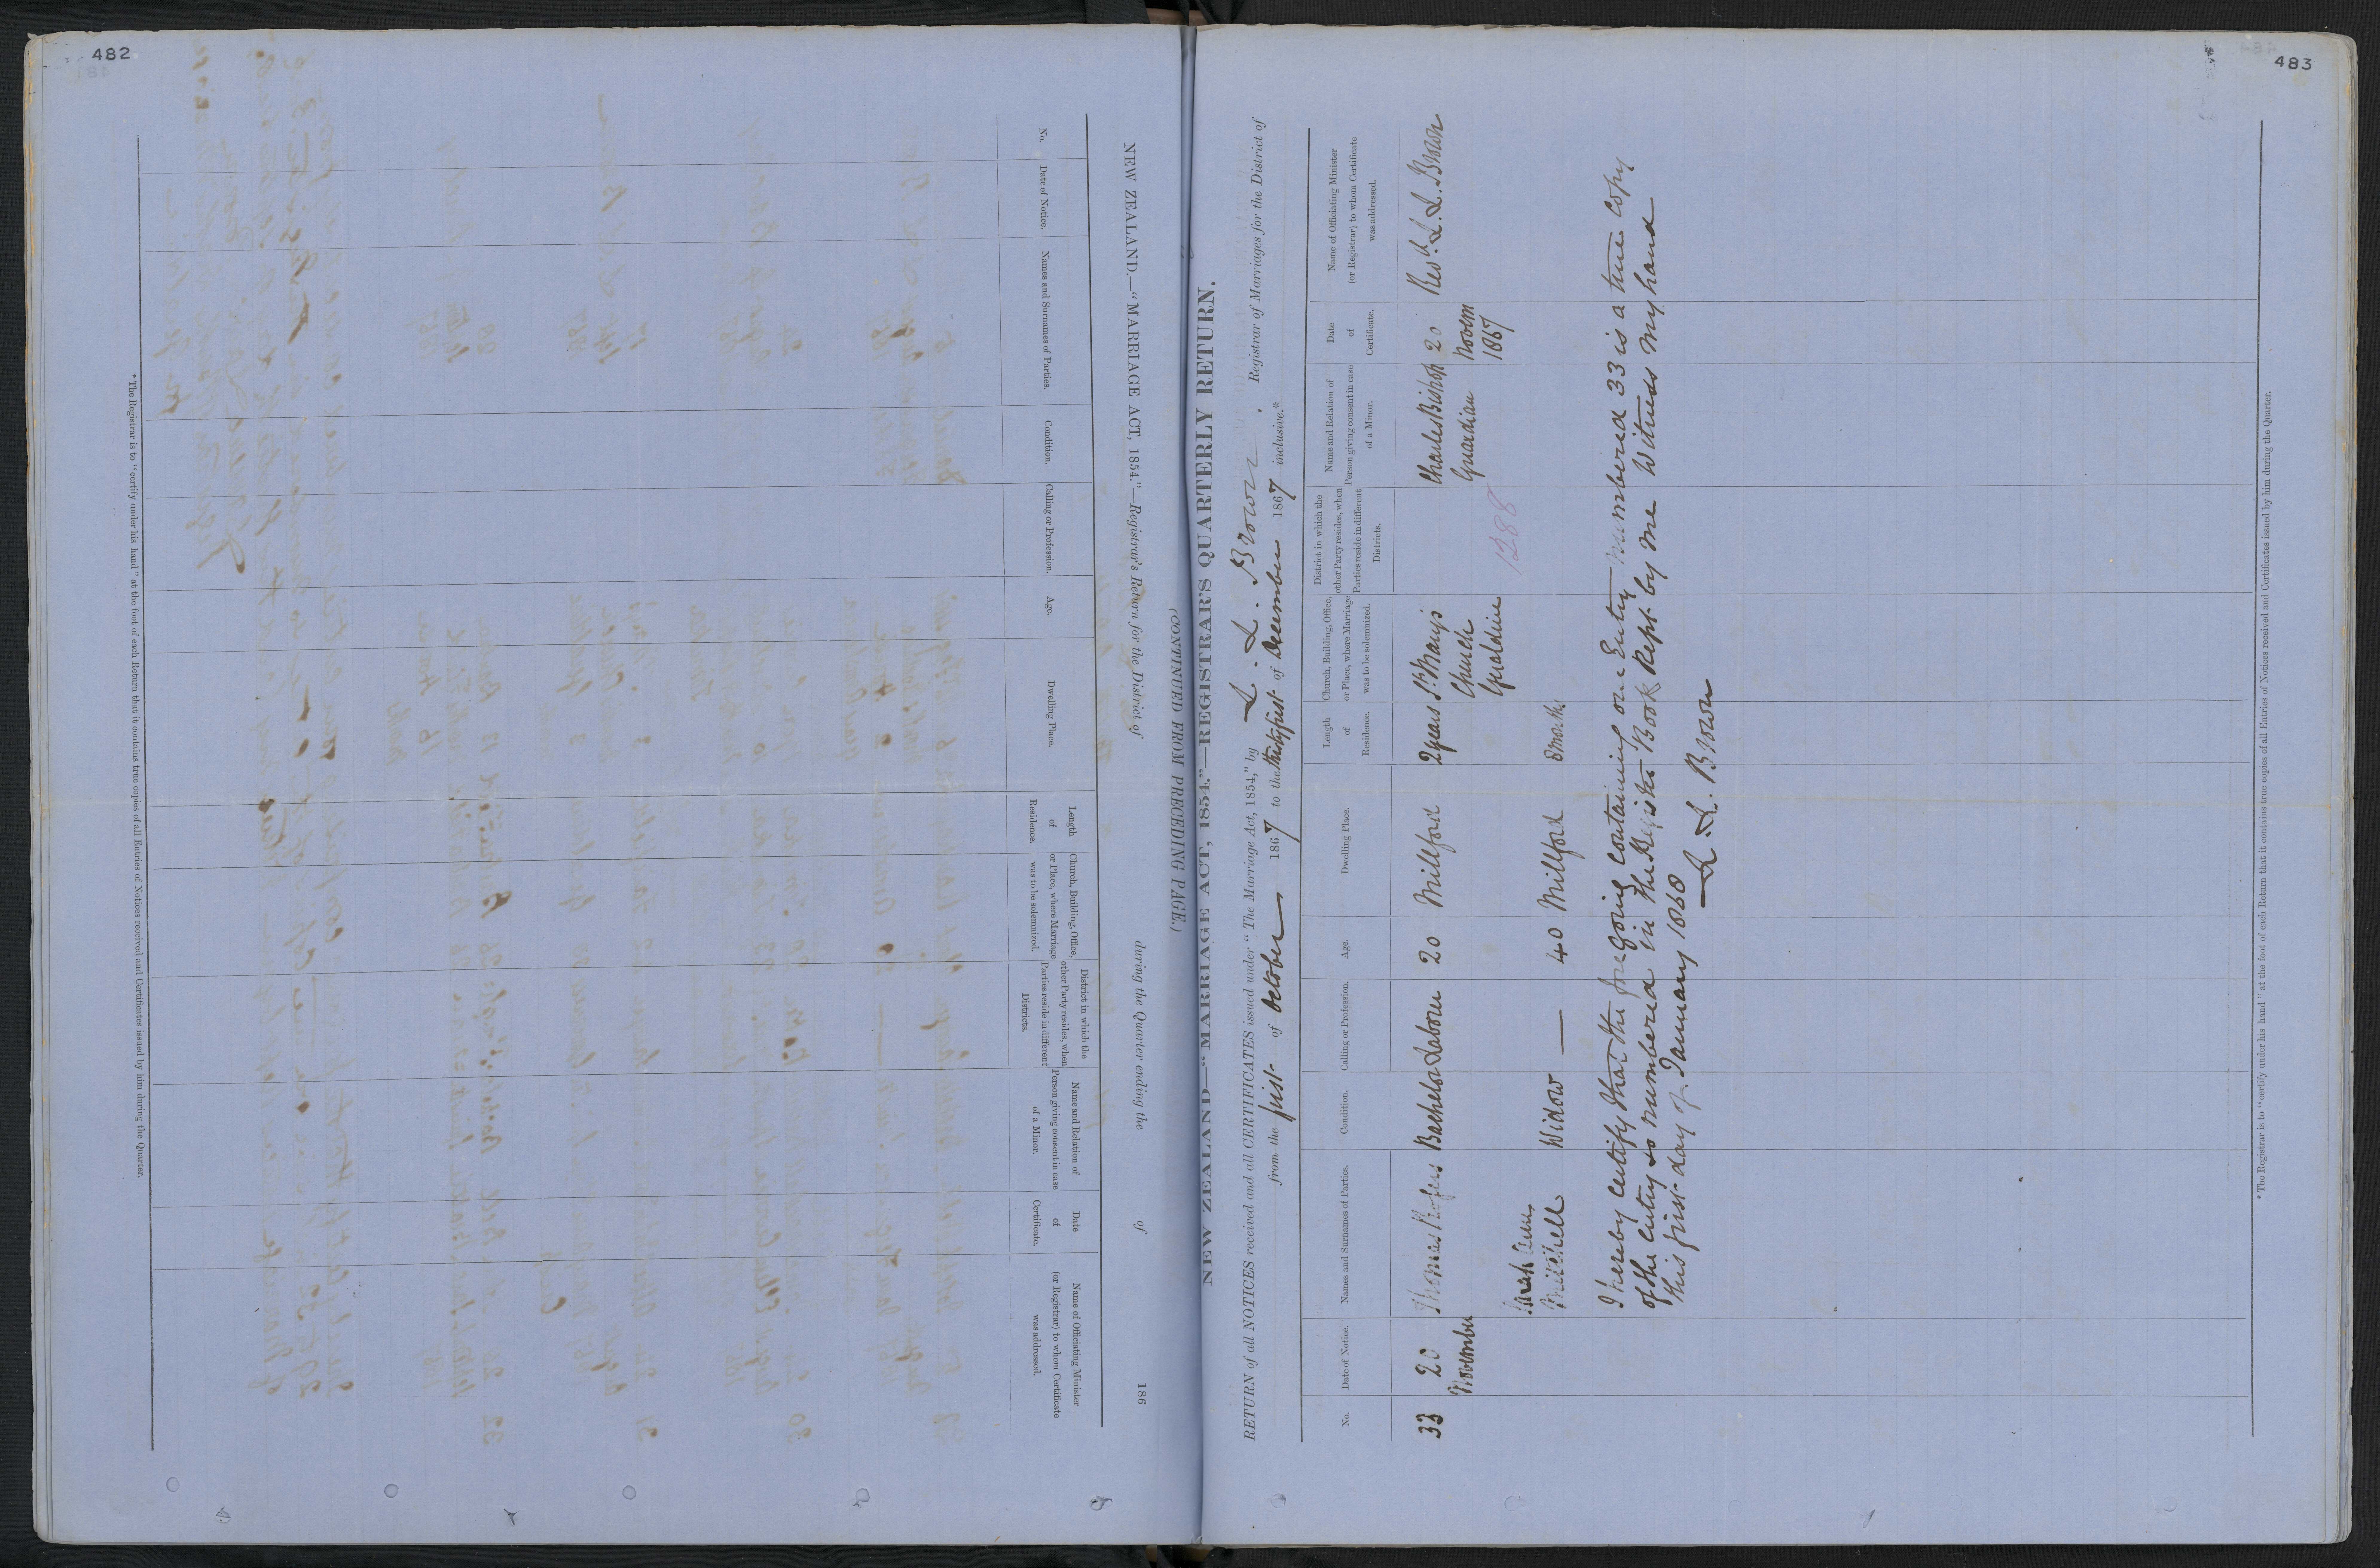 482
NEW ZEALAND.—"MARRIAGE ACT, 1854."—Registrar's Return for the District of during the Quarter ending the of 186
(CONTINUED FROM PRECEDING PAGE.)
No.
Date of Notice.
Names and Surnames of Parties.
Condition.
Calling or Profession.
Age.
Dwelling Place.
Length of Residence.
Church, Building, Office, or Place, where Marriage was to be solemnized.
District in which the other Party resides, when Parties reside in different Districts.
Name and Relation of Person giving consent in case of a Minor.
Date of Certificate.
Name of Officiating Minister (or Registrar) to whom Certificate was addressed.
* The Registrar is to "certify under his hand" at the foot of each Return that it contains true copies of all Entries of Notices received and Certificates issued by him during the Quarter.
483
NEW ZEALAND—"MARRIAGE ACT, 1854."—REGISTRAR'S QUARTERLY RETURN.
RETURN of all NOTICES received and all CERTIFICATES issued under "The Marriage Act, 1854," by L. L. Brown. Registrar of Marriages for the District of
from the first of October 1867 to the thirty first of December 1867 inclusive.*
No.
Date of Notice.
Names and Surnames of Parties.
Condition.
Calling or Profession.
Age.
Dwelling Place.
Length of Residence.
Church, Building, Office, or Place, where Marriage was to be solemnized.
District in which the other Party resides, when Parties reside in different Districts.
Name and Relation of Person giving consent in case of a Minor.
Date of Certificate.
Name of Officiating Minister (or Registrar) to whom Certificate was addressed.
33 20 Thomas Bachelor Labourer 20 Millford 2 years St Mary's Charles Bishop 20 Revd. L. L. Brown
November Church Guardian Novem
Geraldine 1288 1867
Sarah Ann
Mitchell Widow — 40 Millford 8 months
I hereby certify that the foregoing containing one Entry numbered 33 is a true copy
of the entry so numbered in the Register Book kept by me Witness my hand
this first day of January 1868
L. L. Brown
* The Registrar is to "certify under his hand" at the foot of each Return that it contains true copies of all Entries of Notices received and Certificates issued by him during the Quarter.